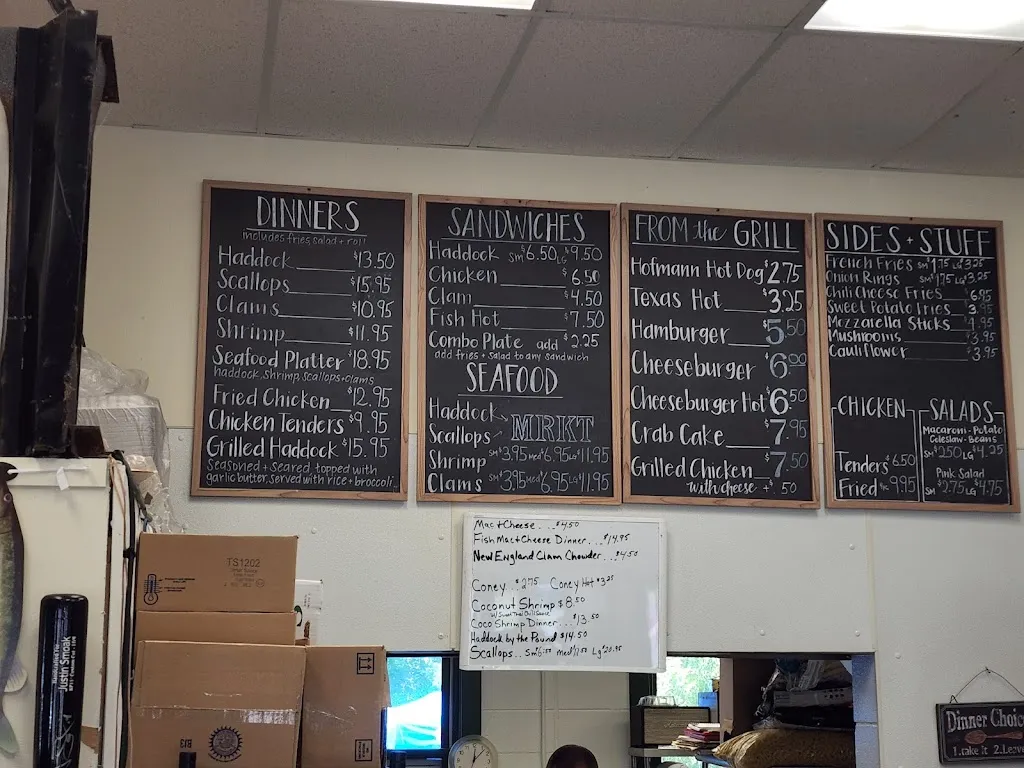 DINNERS
includes fries, salad + roll
Haddock $13.50
Scallops $15.95
Clams $10.95
Shrimp $11.95
Seafood Platter $18.95
haddock, shrimp, scallops + clams
Fried Chicken $12.95
Chicken Tenders $9.95
Grilled Haddock $15.95
Seasoned + Seared, topped with
garlic butter, served with rice + broccoli
SANDWICHES
Haddock SM $6.50 LG $9.50
Chicken $6.50
Clam $4.50
Fish Hot $7.50
Combo Plate add $2.25
add fries + salad to any sandwich
SEAFOOD
Haddock
Scallops
MRKT
Shrimp SM $3.95 med $6.95 LG $11.95
Clams SM $3.95 med $6.95 LG $11.95
FROM the GRILL
Hofmann Hot Dog $2.75
Texas Hot $3.25
Hamburger $5.50
Cheeseburger $6.00
Cheeseburger Hot $6.50
Crab Cake $7.95
Grilled Chicken $7.50
with cheese + $.50
SIDES + STUFF
French Fries SM $1.75 LG $3.25
Onion Rings SM $1.75 LG $3.25
Chili Cheese Fries $6.95
Sweet Potato Fries $3.95
Mozzarella Sticks $4.95
Mushrooms $3.95
Cauliflower $3.95
CHICKEN
Tenders $6.50
Fried $9.95
SALADS
Macaroni - Potato
Coleslaw - Beans
SM $2.50 LG $4.25
Pink Salad
SM $2.75 LG $4.75
Mac + Cheese... $4.50
Fish Mac + Cheese Dinner... $14.95
New England Clam Chowder... $4.50
Coney.. $2.75 Coney Hot $3.25
Coconut Shrimp $8.50
w/ Sweet Thai Chili Sauce
Coco Shrimp Dinner... $13.50
Haddock by the Pound $14.50
Scallops.. Sm Med Lg $20.95
TS1202
Justin Smoak
B13
Dinner Choic
1. Take It 2. Leave